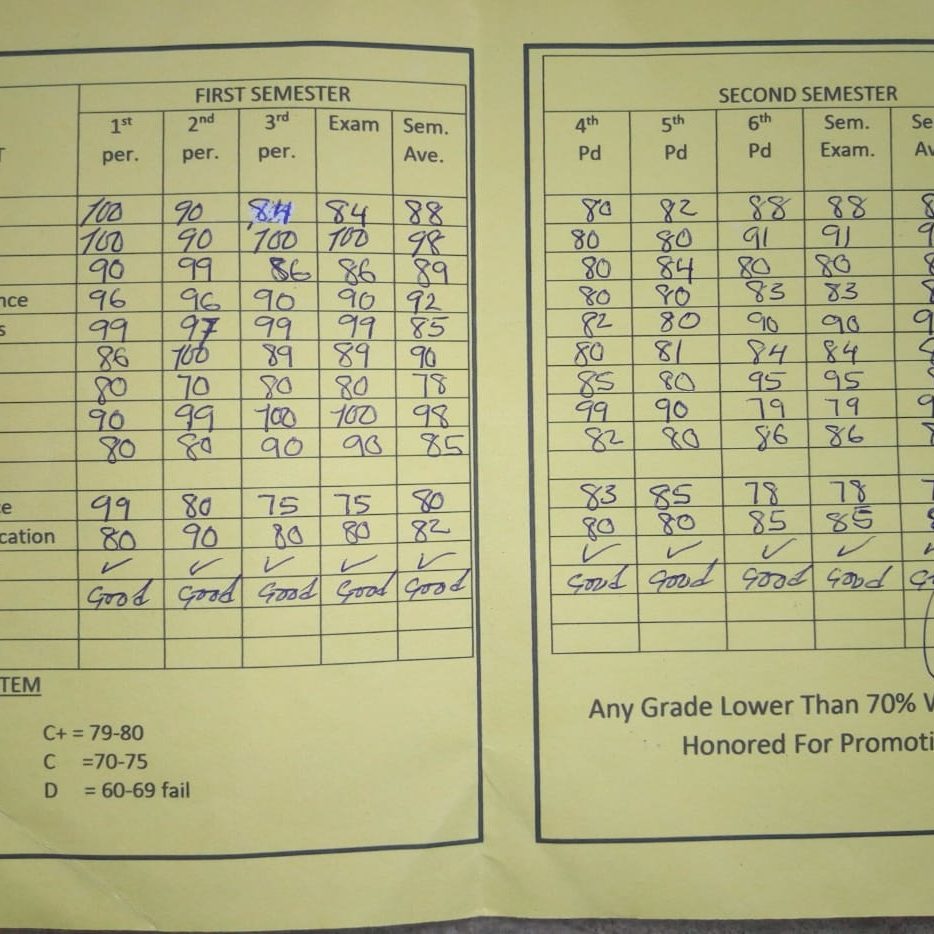 FIRST SEMESTER
1st per. 2nd per. 3rd per. Exam Sem. Ave.
100 90 84 84 88
100 90 100 100 98
90 99 86 86 89
nce 96 96 90 90 92
s 99 97 99 99 85
86 100 89 89 90
80 70 80 80 78
90 99 100 100 98
80 80 90 90 85
ce 99 80 75 75 80
cation 80 90 80 80 82
✓ ✓ ✓ ✓ ✓
Good Good Good Good Good
TEM
C+ = 79-80
C =70-75
D = 60-69 fail
SECOND SEMESTER
4th Pd 5th Pd 6th Pd Sem. Exam. Se Av
80 82 88 88 8
80 80 91 91 9
80 84 80 80 8
80 80 83 83 8
82 80 90 90 9
80 81 84 84
85 80 95 95
99 90 79 79 9
82 80 86 86 8
83 85 78 78 7
80 80 85 85 8
✓ ✓ ✓ ✓
Good Good Good Good G
Any Grade Lower Than 70% W
Honored For Promoti